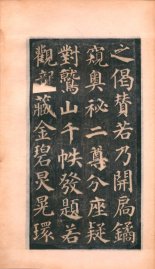 之偈贊若乃開扃鐍
窺奧祕二尊分座疑
對鷲山千帙發題若
觀龍藏金碧炅晃環